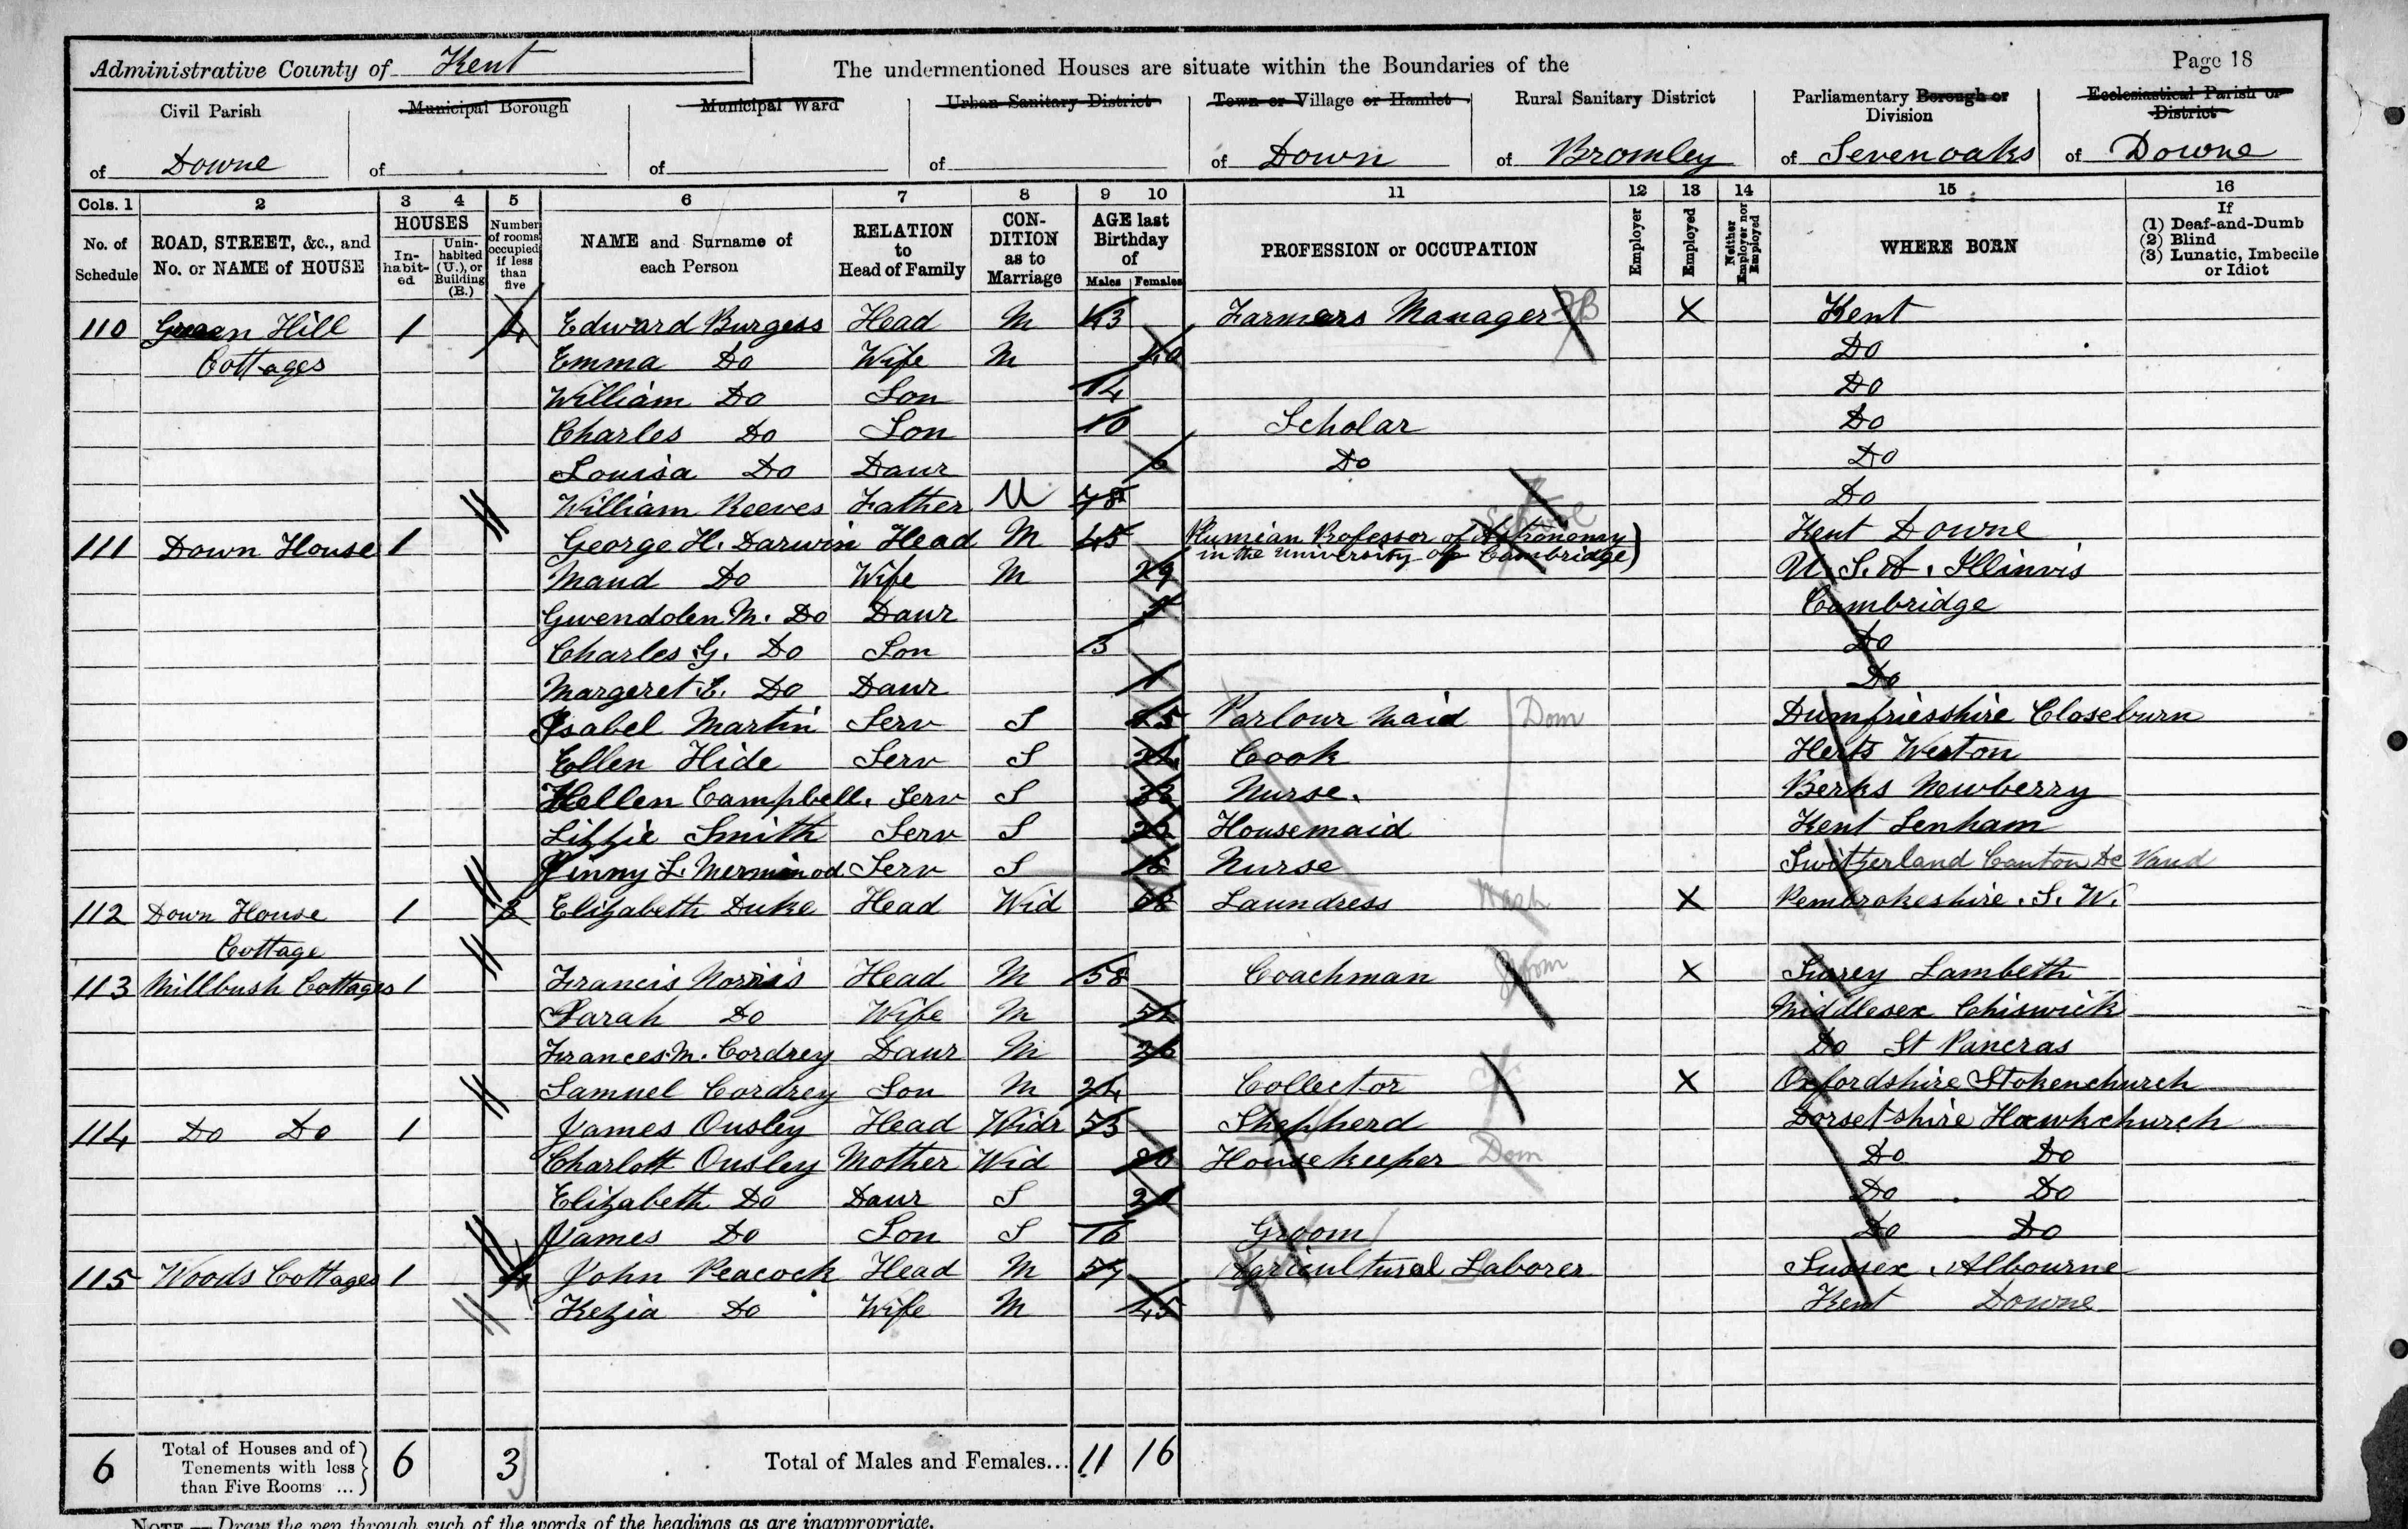 Administrative County of Kent
The undermentioned Houses are situate within the Boundaries of the
Page 18
Civil Parish of Downe
Municipal Borough of
Municipal Ward of
Urban Sanitary District of
Town or Village or Hamlet of Down
Rural Sanitary District of Bromley
Parliamentary Borough or Division of Sevenoaks
Ecclesiastical Parish or District of Downe
Cols. 1 2 3 4 5 6 7 8 9 10 11 12 13 14 15 16
No. of Schedule
ROAD, STREET, &c., and No. or NAME of HOUSE
HOUSES
In-habit-ed
Unin-habited (U.), or Building (B.)
Number of rooms occupied if less than five
NAME and Surname of each Person
RELATION to Head of Family
CON-DITION as to Marriage
AGE last Birthday of
Males Females
PROFESSION or OCCUPATION
Employer
Employed
Neither Employer nor Employed
WHERE BORN
If
(1) Deaf-and-Dumb
(2) Blind
(3) Lunatic, Imbecile or Idiot
110 Green Hill 1 4 Edward Burgess Head M 43 Farmers Manager X Kent
Cottages Emma Do Wife M 40 Do
William Do Son 14 Do
Charles Do Son 10 Scholar Do
Louisa Do Daur 6 Do Do
William Reeves Father M 78 Do
111 Down House 1 George H. Darwin Head M 45 Plumian Professor of Astronomy Kent Downe
in the University of Cambridge)
Maud Do Wife M 29 U.S.A. Illinois
Gwendolen M. Do Daur Cambridge
Charles G. Do Son 3 Do
Margeret E. Do Daur 1 Do
Isabel Martin Serv S 25 Parlour Maid Dom Dumfriesshire Closeburn
Ellen Hide Serv S 24 Cook Herts Weston
Hellen Campbell. Serv S Nurse. Berks Newberry
Lizzie Smith Serv S Housemaid Kent Lenham
Jinny L. Merminod Serv S 18 Nurse Switzerland Canton De Vaud
112 Down House 1 3 Elizabeth Duke Head Wid 68 Laundress Wash X Pembrokeshire. S. W.
Cottage
113 Millbush Cottages 1 Francis Norris Head M 58 Coachman Groom X Surrey Lambeth
Sarah Do Wife M Middlesex Chiswick
Frances M. Cordrey Daur M 26 Do St Pancras
Samuel Cordrey Son M 24 Collector X Oxfordshire Stokenchurch
114 Do Do 1 James Ousley Head Widr 53 Shepherd Dorsetshire Hawkchurch
Charlott Ousley Mother Wid 80 Housekeeper Dom Do Do
Elizabeth Do Daur S 21 Do Do
James Do Son S 16 Groom Do Do
115 Woods Cottages 1 4 John Peacock Head M 57 Agricultural Laborer Sussex. Albourne
Kezia Do Wife M 45 Kent Downe
6 Total of Houses and of Tenements with less than Five Rooms ... 6 3 Total of Males and Females... 11 16
NOTE.—Draw the pen through such of the words of the headings as are inappropriate.